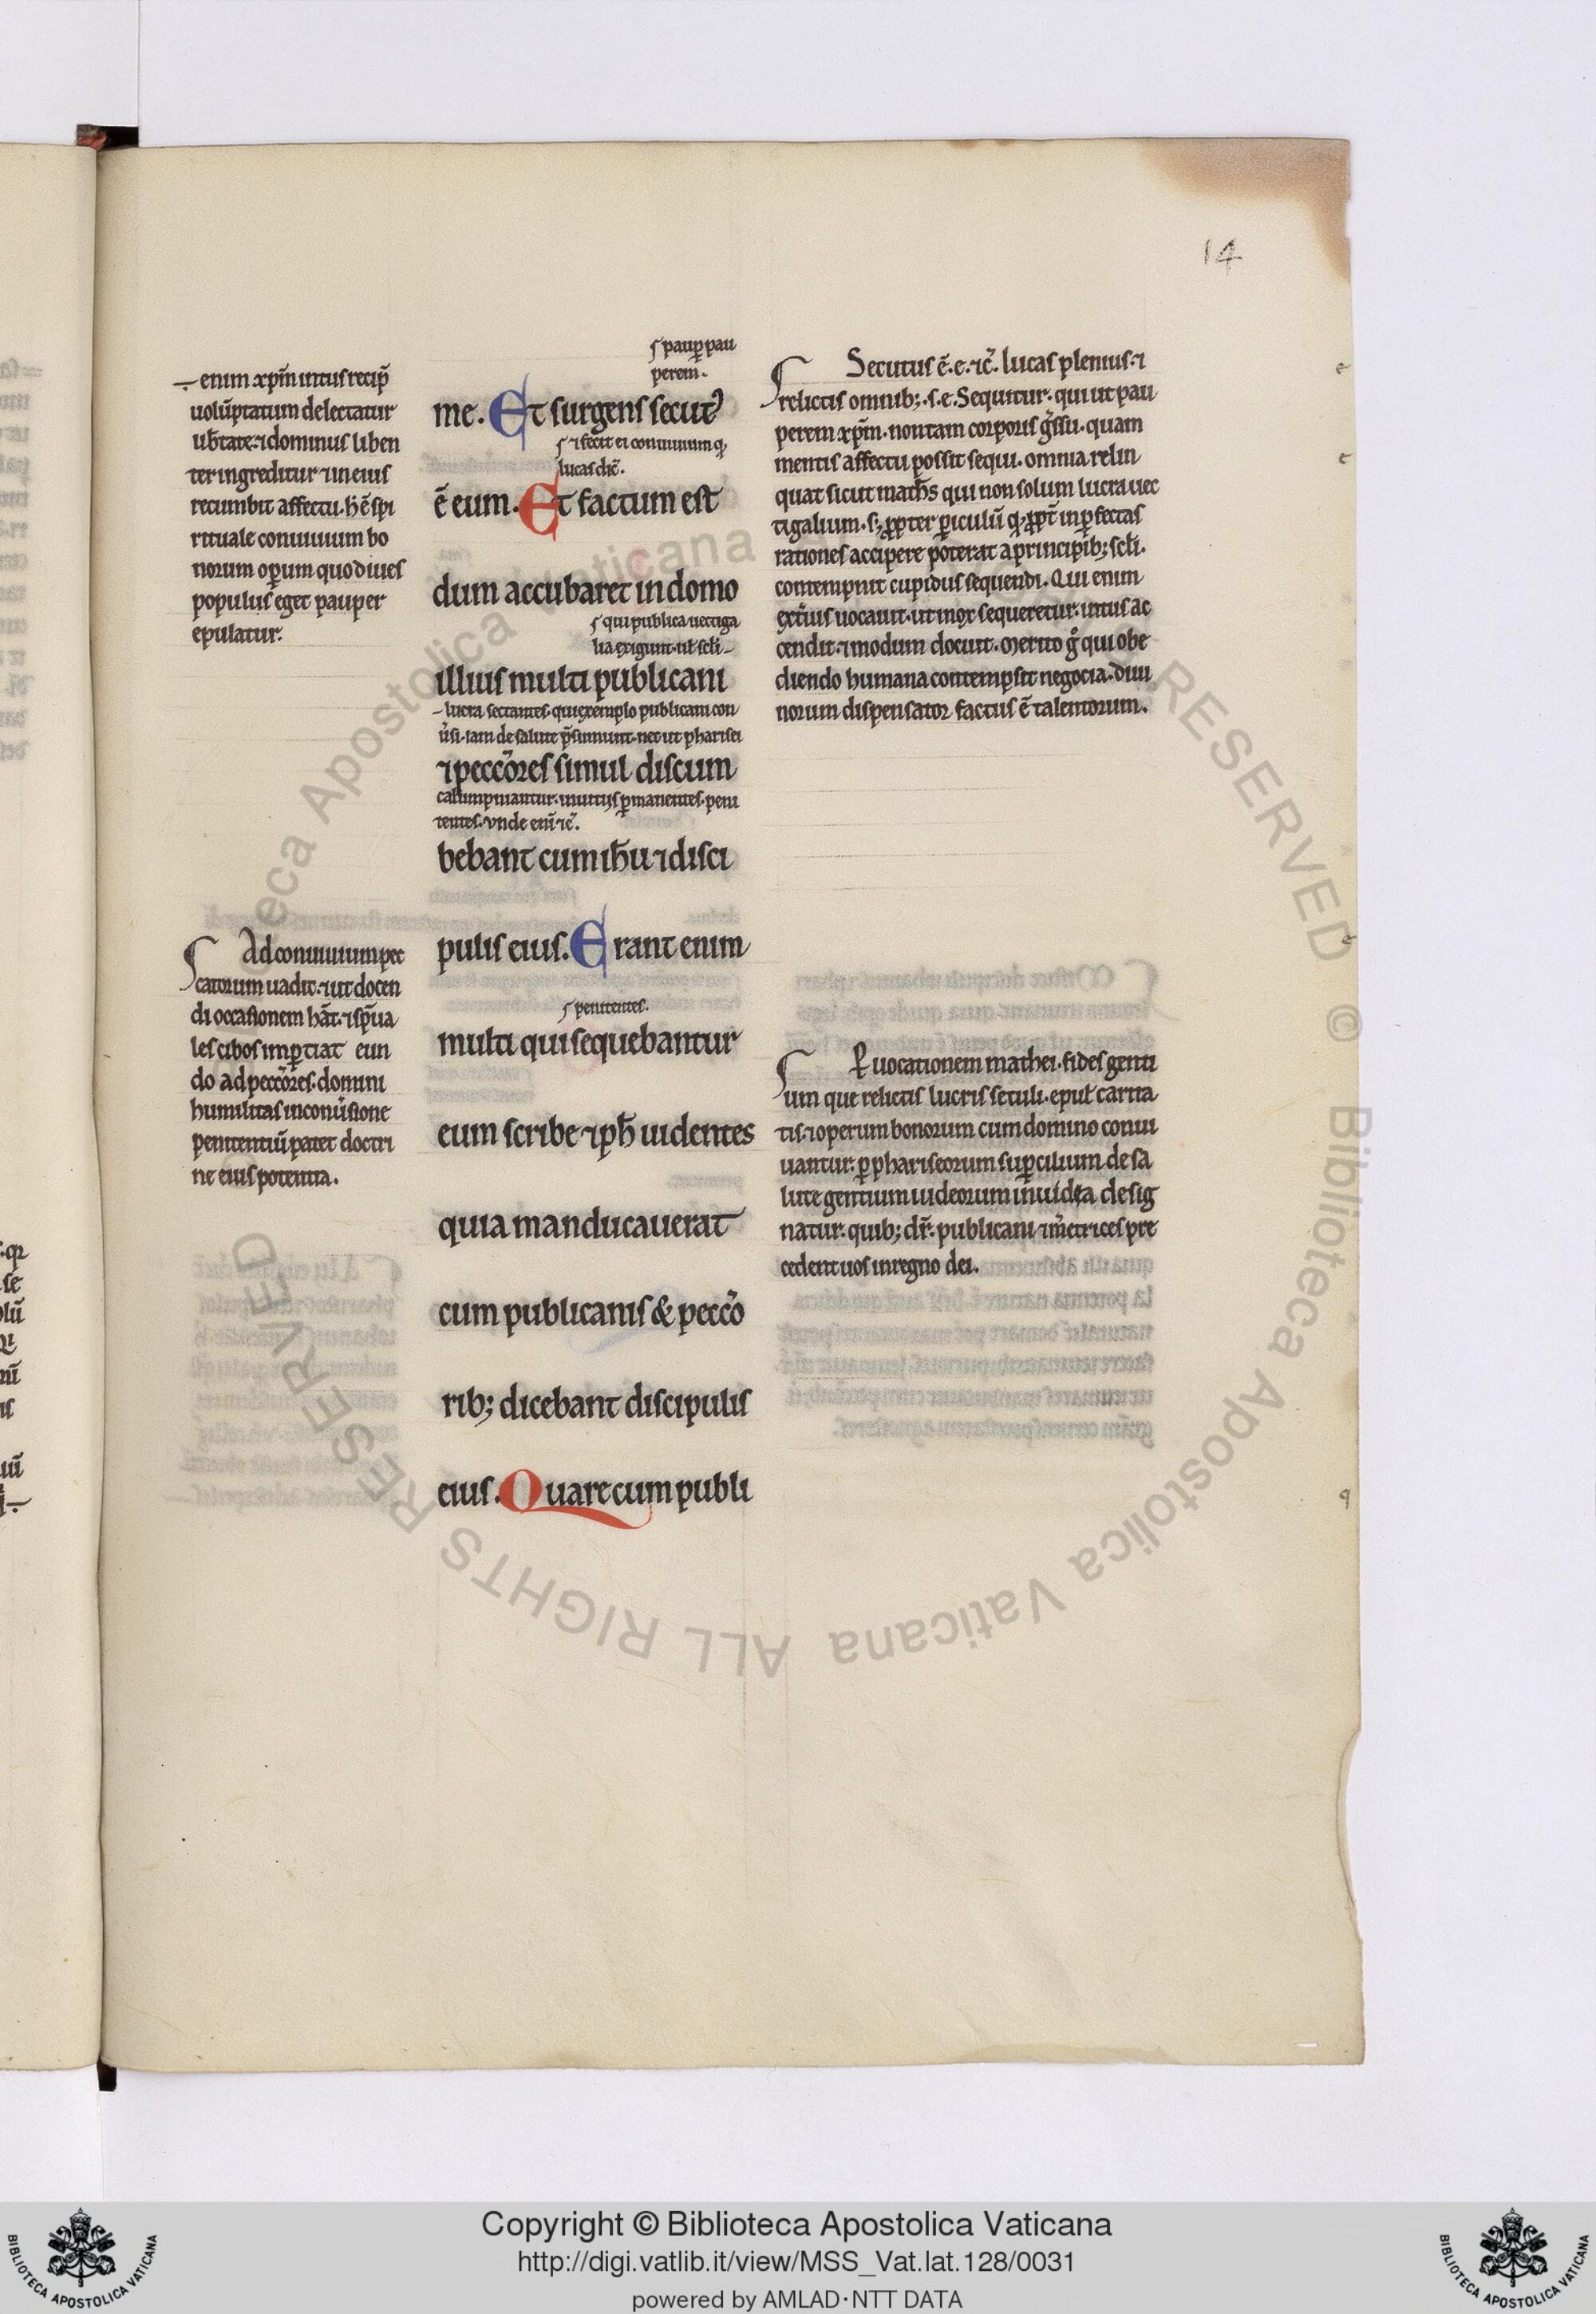 14
— enim xp̄m intus recip̄
uolūptatum delectatur
ub̄tate. ⁊ dominus liben
ter ingreditur ⁊ in eius
recumbit affectu. h̄ ē spi
rituale conuiuium bo
norum op̱um quo diues
populus eget pauper
epulatur.
Ad conuiuium pec
catorum uadit. ⁊ ut docen
di occasionem hāt. ⁊ sp̄ua
les cibos imp̱tiat eun
do ad pecc̄ores. domini
humilitas in conu̾sione
penitentiū patet doctri
ne eius potentia.
s paupeṟ pau
perem.
me. Et surgens secut᾿
s ⁊ fecit ei conuiuium q;
lucas dic̄.
ē eum. Et factum est
dum accubaret in domo
s qui publica uectiga
lia exigunt. ul̄ scl̄i –
illius multi publicani
– lucra sectantes. qui exemplo publicani con
u̾si. iam de salute p̄sumunt. nec ut pharisei
⁊ pecc̄ores simul discum
calumpniantur. in uitiis p̱manentes. peni
tentes. vnde enī ⁊c̄.
bebant cum ih̄u ⁊ disci
pulis eius. Erant enim
s penitentes.
multi qui sequebantur
eum scribe ⁊ ph̄ uidentes
quia manducauerat
cum publicanis & pecc̄o
rib; dicebant discipulis
eius. Quare cum publi
Secutus ē. e. ⁊c̄. lucas plenius. ⁊
relictis omnib;. s. e. Sequitur. qui ut pau
perem xp̄m. non tam corporis g̾ssu. quam
mentis affectu possit sequi. omnia relin
quat sicut math̄s qui non solum lucra uec
tigalium. s; p̱pter p̱iculū q; p̱pt̄ inp̱fectas
rationes accipere poterat a principib; scl̄i.
contempnit cupidus sequendi. Qui enim
ext̾ius uocauit. ut mox sequeretur. intus ac
cendit. ⁊ modum docuit. merito g̊ qui obe
diendo humana contempsit negocia. diui
norum dispensator factus ē talentorum.
P̱ uocationem mathei. fides genti
um que relictis lucris seculi. epul̄ carita
tis. ⁊ operum bonorum cum domino conui
uantur. p̱ phariseorum sup̱cilium de sa
lute gentium iudeorum inuidia desig
natur. quib; dr̄. publicani ⁊ m̾etrices pre
cedent uos in regno dei.
Copyright © Biblioteca Apostolica Vaticana
http://digi.vatlib.it/view/MSS_Vat.lat.128/0031
powered by AMLAD·NTT DATA